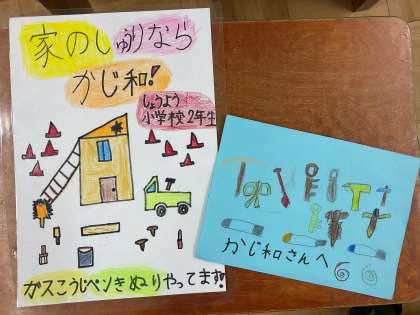 家のしゅりなら
かじ和!
しょうよう
小学校2年生
ガスこうじペンきぬりやってます!
かじ和さんへ